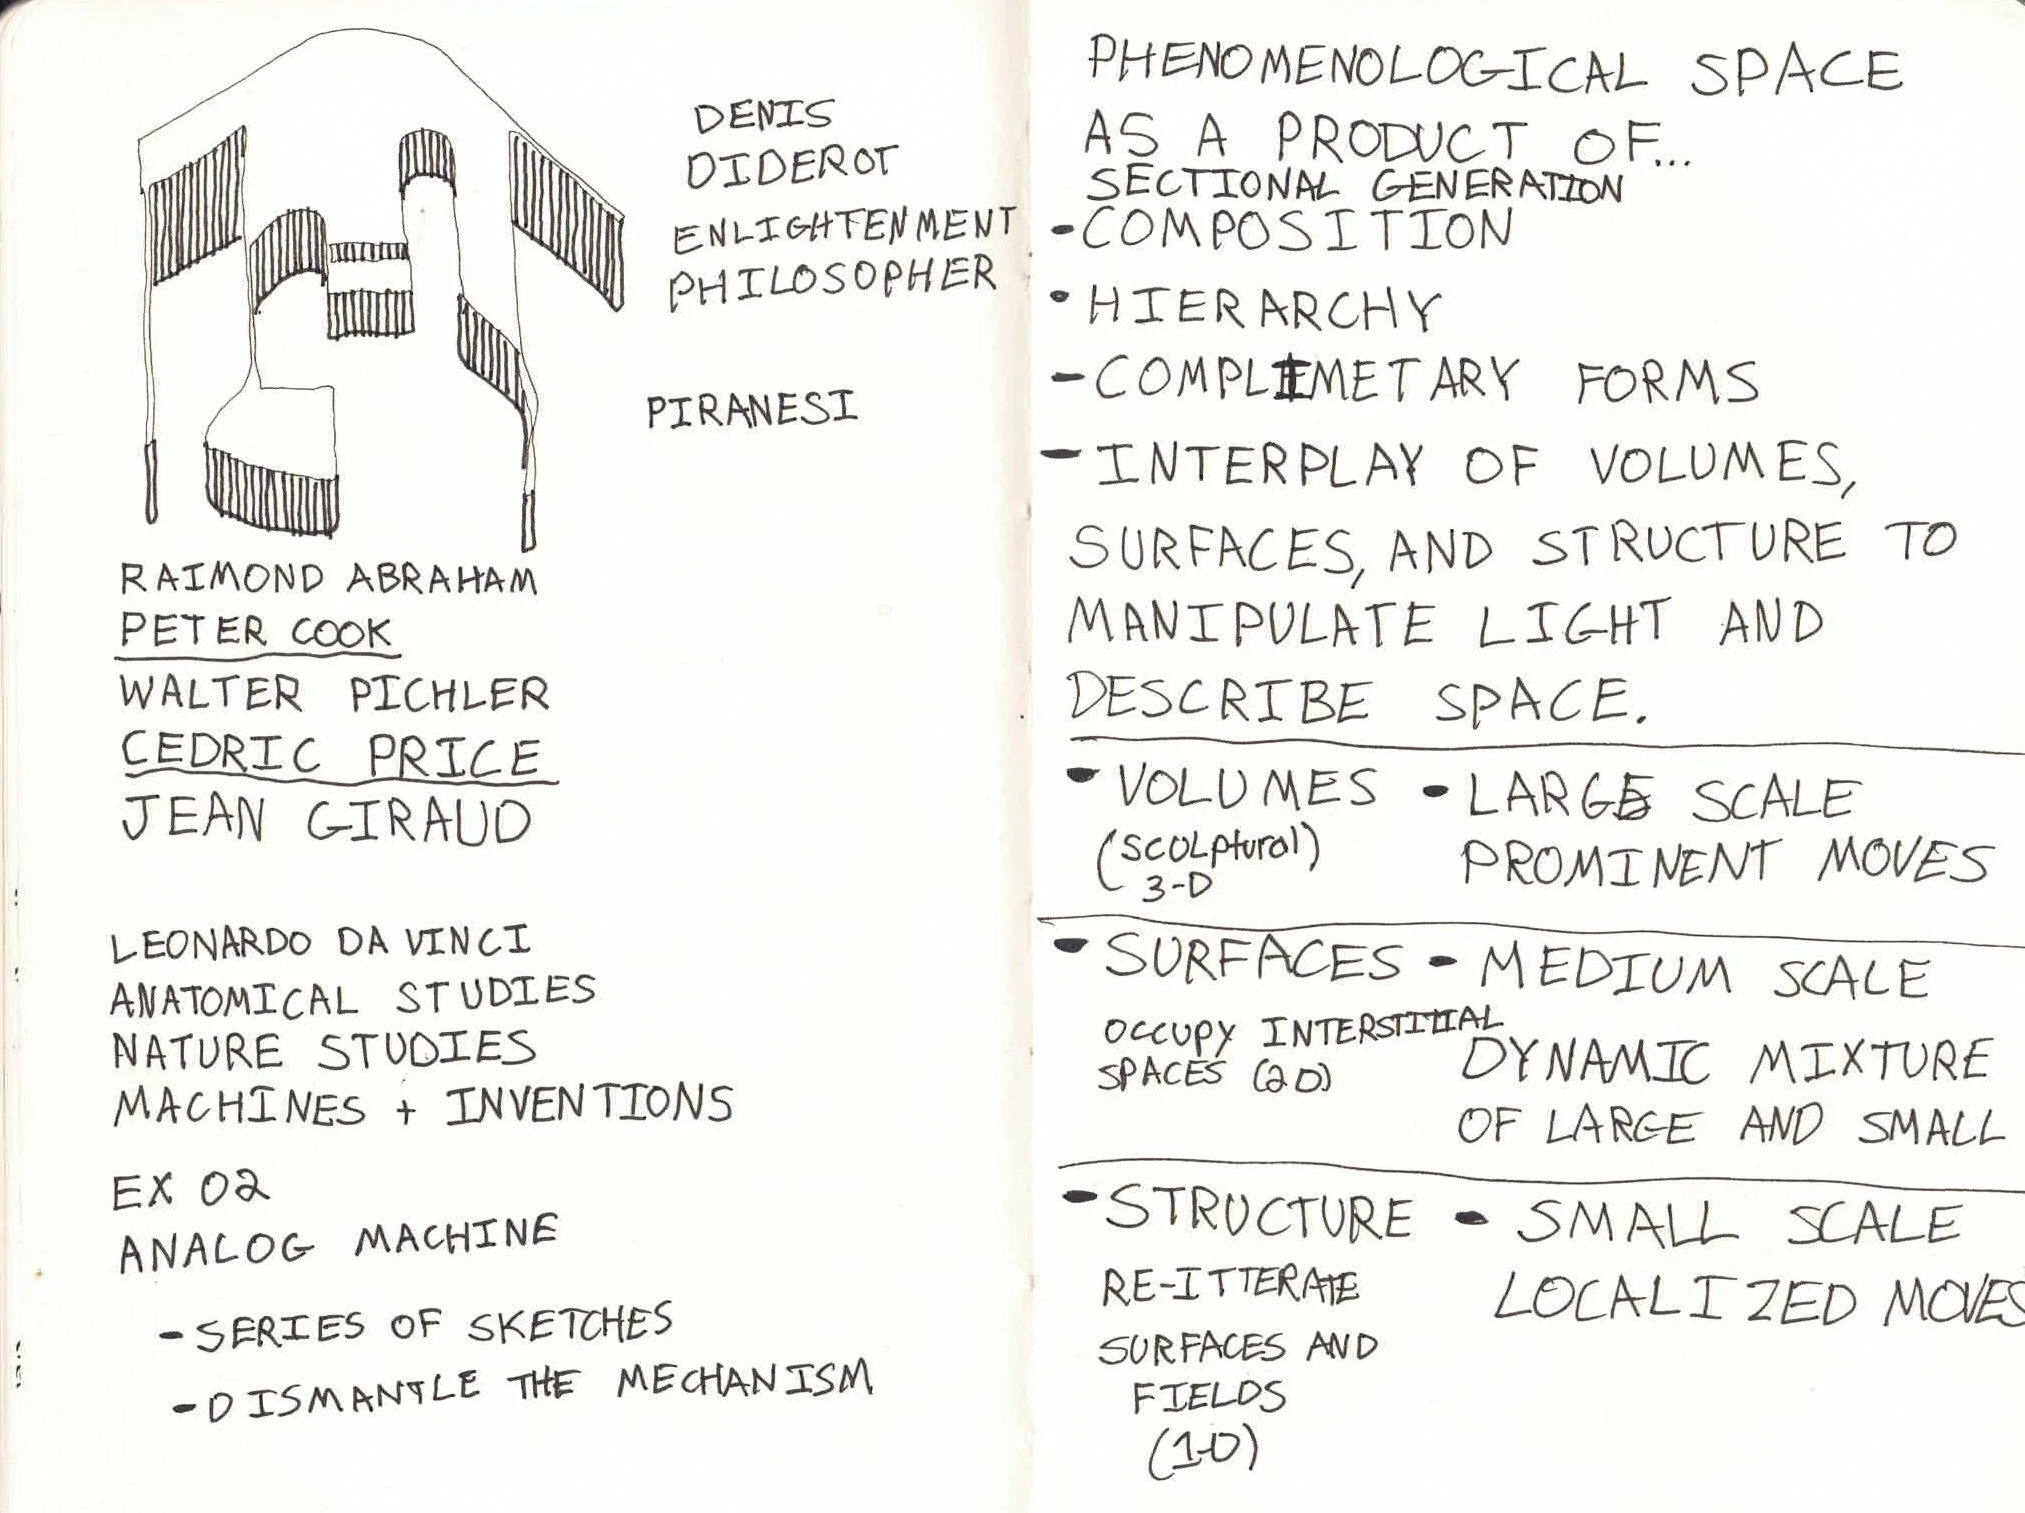 DENIS
DIDEROT
ENLIGHTENMENT
PHILOSOPHER
PIRANESI
RAIMOND ABRAHAM
PETER COOK
WALTER PICHLER
CEDRIC PRICE
JEAN GIRAUD
LEONARDO DA VINCI
ANATOMICAL STUDIES
NATURE STUDIES
MACHINES + INVENTIONS
EX 02
ANALOG MACHINE
- SERIES OF SKETCHES
- DISMANTLE THE MECHANISM
PHENOMENOLOGICAL SPACE
AS A PRODUCT OF...
SECTIONAL GENERATION
- COMPOSITION
• HIERARCHY
- COMPLIMETARY FORMS
- INTERPLAY OF VOLUMES,
SURFACES, AND STRUCTURE TO
MANIPULATE LIGHT AND
DESCRIBE SPACE.
- VOLUMES
(SCULptural)
3-D
- LARGE SCALE
PROMINENT MOVES
- SURFACES
OCCUPY INTERSTITIAL
SPACES (2D)
- MEDIUM SCALE
DYNAMIC MIXTURE
OF LARGE AND SMALL
- STRUCTURE
RE-ITTERATE
SURFACES AND
FIELDS
(1-D)
- SMALL SCALE
LOCALIZED MOVES